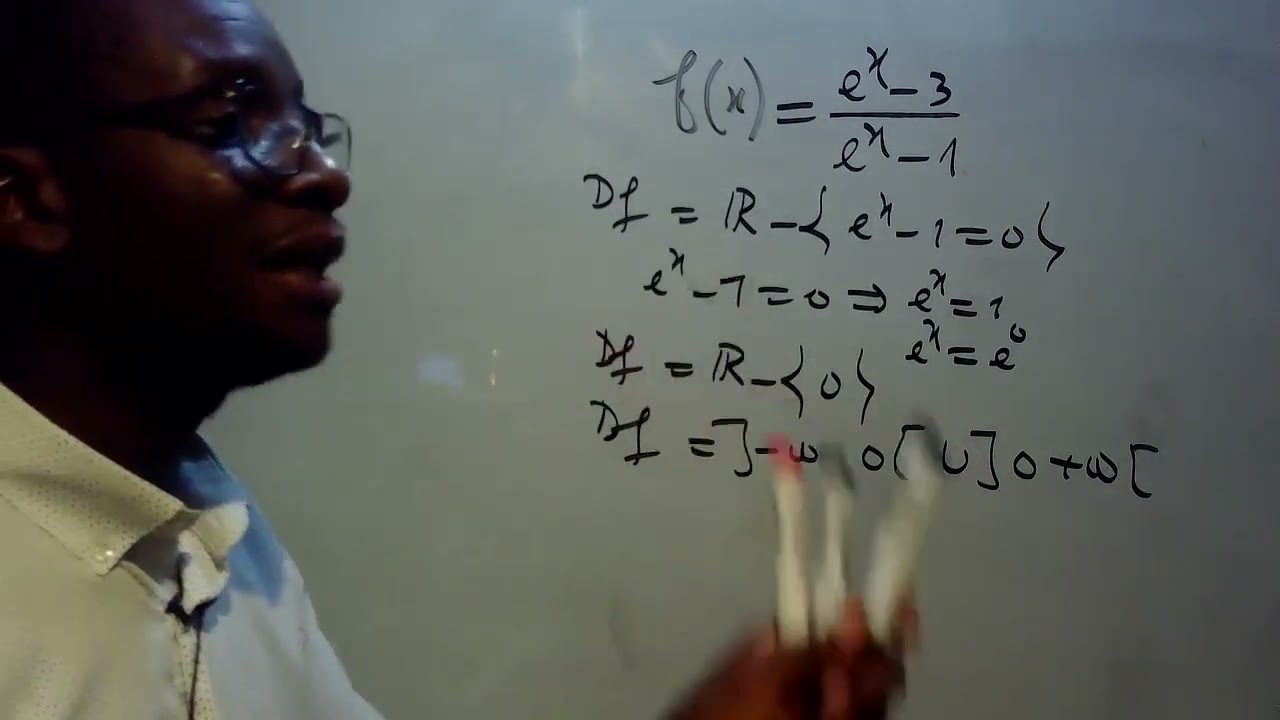 f(x) = (e^x - 3)/(e^x - 1)
Df = ℝ - { e^x - 1 = 0 }
e^x - 1 = 0 ⇒ e^x = 1
e^x = e^0
Df = ℝ - { 0 }
Df = ]-∞ 0[ ∪ ]0 +∞[